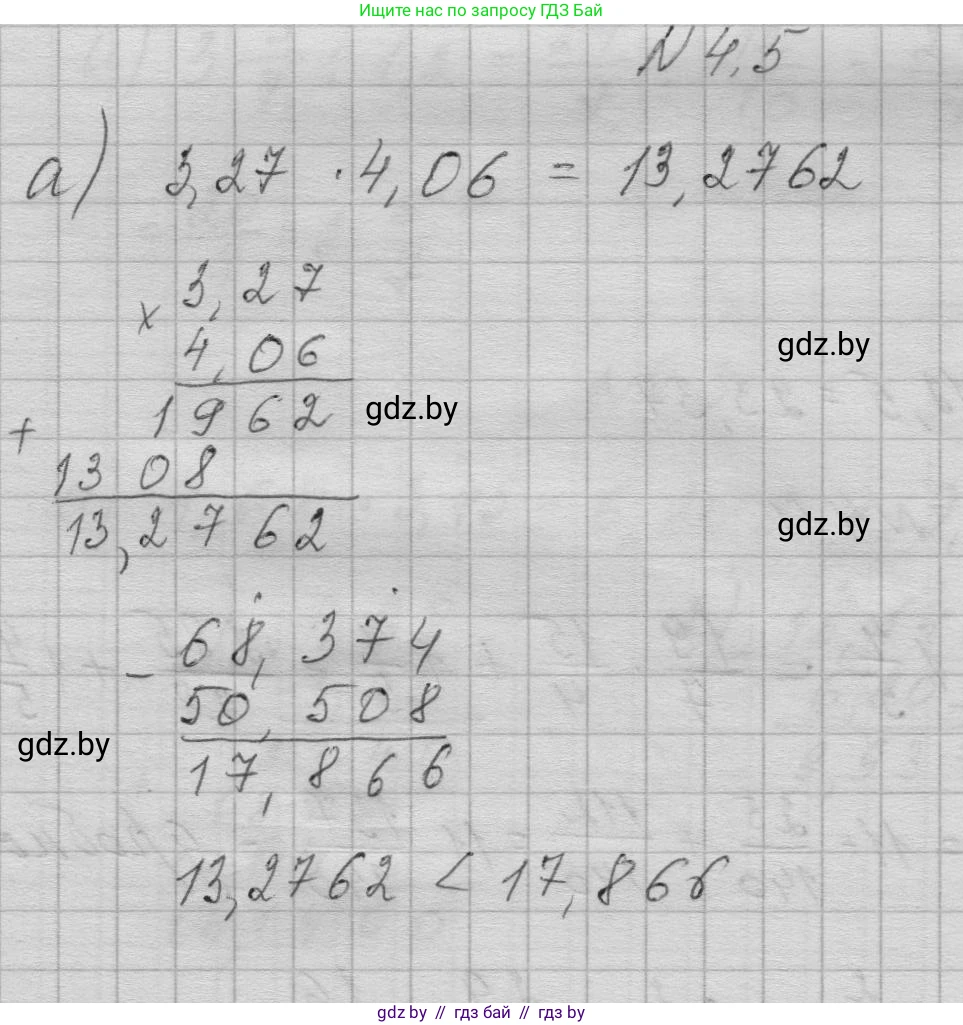 Ищите нас по запросу ГДЗ Бай
N 4,5
а) 3,27 · 4,06 = 13,2762
× 3,27
4,06
gdz.by
1962
gdz.by
+
1308
13,2762
gdz.by
- 68,374
50,508
gdz.by
17,866
13,2762 < 17,866
gdz.by // гдз бай // гдз by